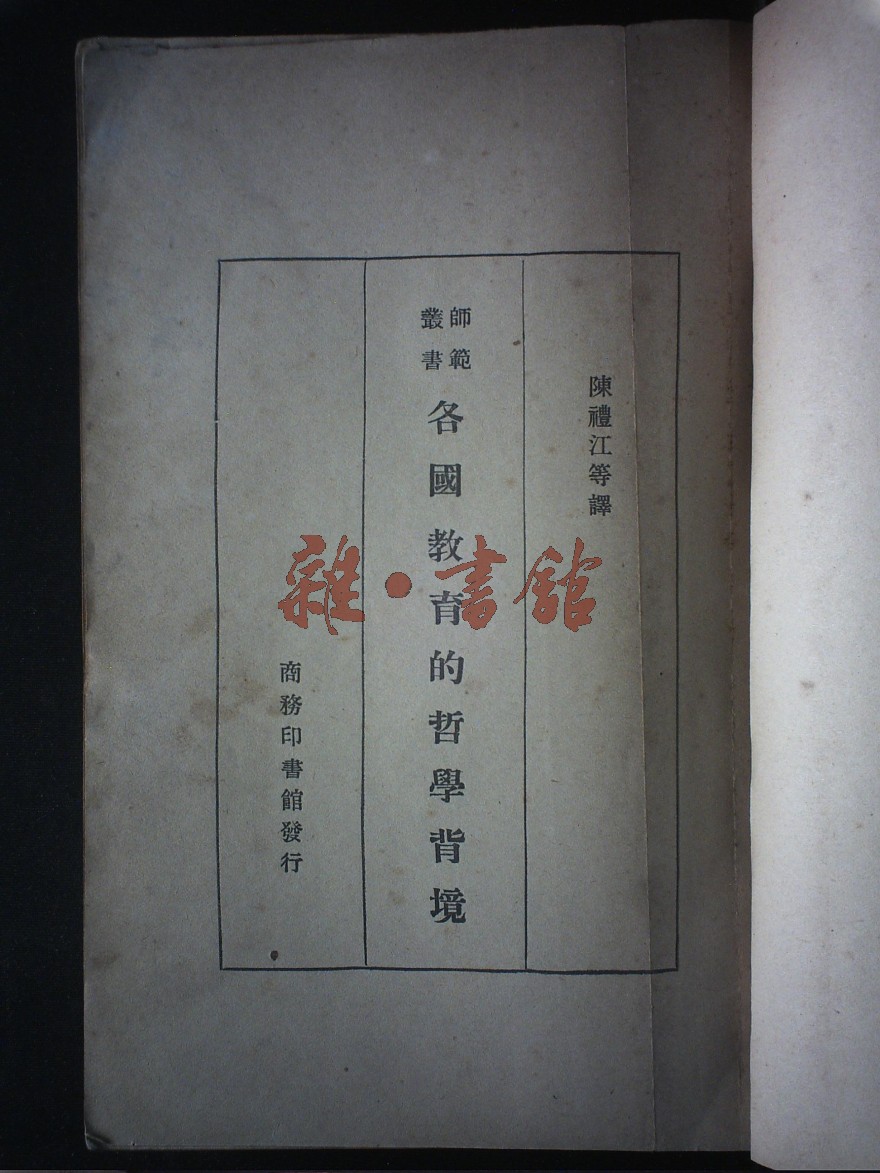 陳禮江等譯
師範
叢書
各國教育的哲學背境
商務印書館發行
雜·書館